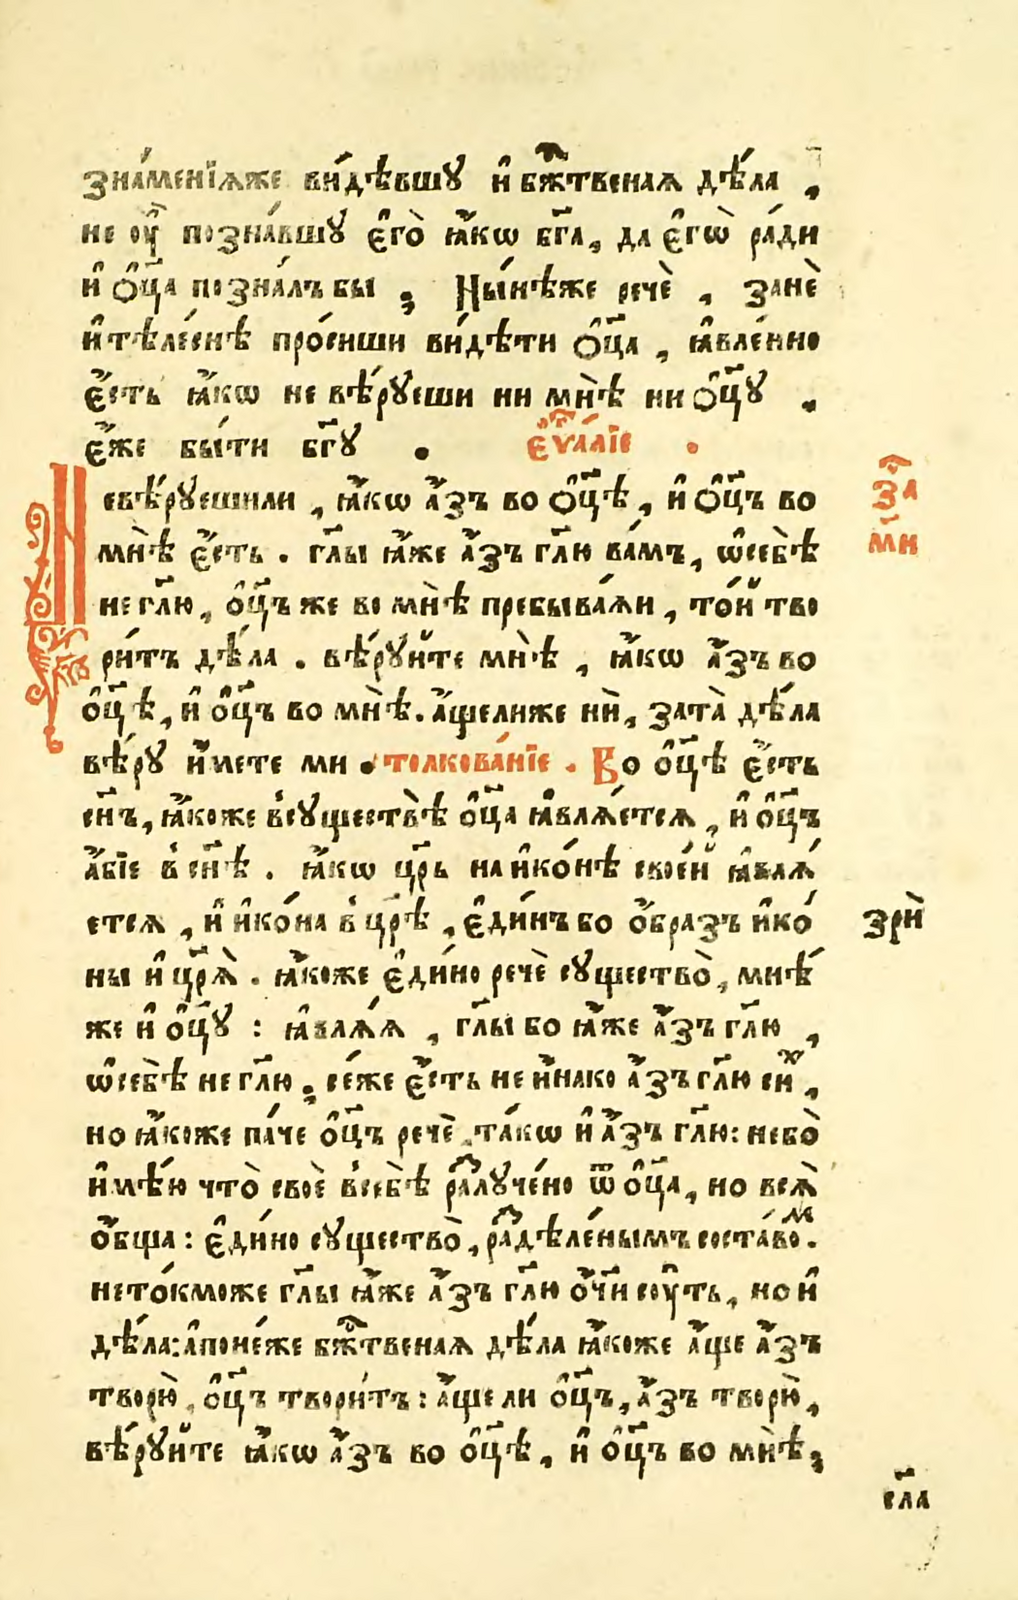 зна́менїꙗже ви́дѣвшꙋ и҆ бж҇твенаѧ дѣ́ла ,
не оу҆ позна́вшꙋ є҆го̀ ꙗ҆́кѡ бг҃а, да є҆гѡ̀ ра́ди
и҆ ѻ҆ц҃а позна́лъ бы , Ны́нѣже речѐ , занѐ
и҆ тѣле́снѣ про́сиши ви́дѣти ѻ҆ц҃а , ꙗ҆вле́нно
є҆́сть ꙗ҆́кѡ не вѣ́рꙋеши ни мнѣ̀ ни ѻ҆ц҃ꙋ .
є҆́же бы́ти бг҃ꙋ . є҆ѵⷢ҇а́лїе .
Невѣ́рꙋешили , ꙗ҆́кѡ а҆́зъ во ѻ҆ц҃ѣ , и҆ ѻ҆ц҃ъ во
мнѣ̀ є҆́сть . гл҃ы ꙗ҆́же а҆́зъ гл҃ю ва́мъ, ѡ҆себѣ̀
не гл҃ю, ѻ҆ц҃ъ же во мнѣ̀ пребыва́ѧи , то́й тво
ри́тъ дѣ́ла . вѣ́рꙋйте мнѣ̀ , ꙗ҆́кѡ а҆́зъ во
ѻ҆ц҃ѣ, и҆ ѻ҆ц҃ъ во мнѣ̀. а҆́щелиже нѝ, зата̀ дѣ́ла
вѣ́рꙋ и҆́мете ми . толкова́нїе . Во ѻ҆ц҃ѣ є҆́сть
сн҃ъ, ꙗ҆́коже в̾сꙋществѣ̀ ѻ҆ц҃а ꙗ҆влѧ́етсѧ, и҆ ѻ҆ц҃ъ
а҆́бїе в̾ сн҃ѣ . ꙗ҆́кѡ цр҃ь на и҆ко́нѣ свое́й ꙗ҆влѧ́
етсѧ , и҆ и҆ко́на в̾ цр҃ѣ , є҆ди́нъ бо ѻ҆́бразъ и҆ко́
ны и҆ цр҃ѧ̀ . ꙗ҆́коже є҆ди́но речѐ сꙋщество̀, мнѣ́
же и҆ ѻ҆ц҃ꙋ : ꙗ҆влѧ́ѧ , гл҃ы бо ꙗ҆́же а҆́зъ гл҃ю ,
ѡ҆себѣ̀ не гл҃ю , се́же є҆́сть не и҆́нако а҆́зъ гл҃ю сн҃ъ ,
но ꙗ҆́коже па́че ѻ҆ц҃ъ речѐ, та́кѡ и҆ а҆́зъ гл҃ю: небо̀
и҆мѣ́ю что̀ своѐ в̾себѣ̀ раⷥлꙋче́но ѿ ѻ҆ц҃а , но всѧ̀
ѻ҆́бща : є҆ди́но сꙋщество̀, раⷥдѣле́нымъ соста́воⷨ .
нето́кможе гл҃ы ꙗ҆́же а҆́зъ гл҃ю ѻ҆́ч҃и соу҆ть , но и҆
дѣ́ла: а҆поне́же бж҇твенаѧ дѣ́ла ꙗ҆́коже а҆́ще а҆́зъ
творю̀, ѻ҆ц҃ъ твори́тъ : а҆́ще ли ѻ҆ц҃ъ, а҆́зъ творю̀,
вѣ́рꙋйте ꙗ҆́кѡ а҆́зъ во ѻ҆ц҃ѣ , и҆ ѻ҆ц҃ъ во мнѣ̀,
за
м҃и
зрѝ
сл҃а